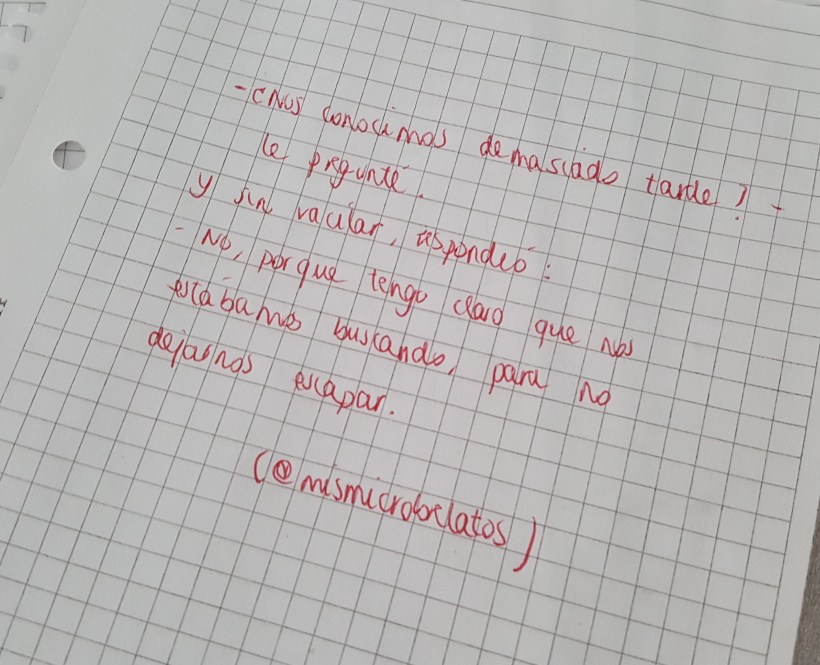 - ¿Nos conocimos demasiado tarde? -
le pregunté.
Y sin vacilar, respondió:
- No, porque tengo claro que nos
estábamos buscando, para no
dejarnos escapar.
(@mismicrorrelatos)